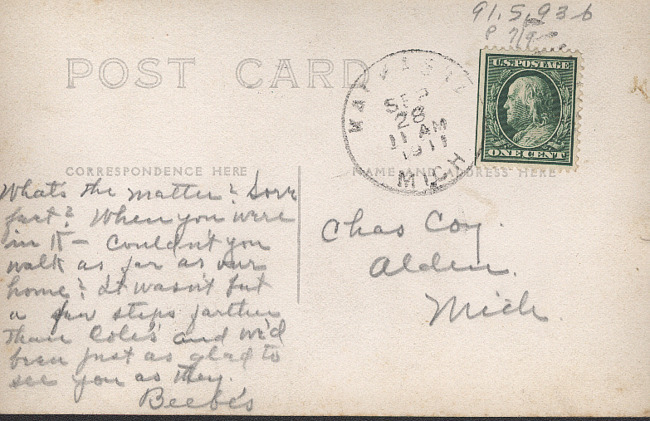 91.5.93-b
POST CARD
U.S. POSTAGE
ONE CENT
SEP
28
11 AM
1911
MICH
CORRESPONDENCE HERE
NAME AND ADDRESS HERE
Whats the matter? Sore
feet? When you were
in K— couldn't you
walk as far as our
home? It wasn't but
a few steps farther
than Cole's and we'd
been just as glad to
see you as they.
Beebe's
Chas Coy.
Alden.
Mich.